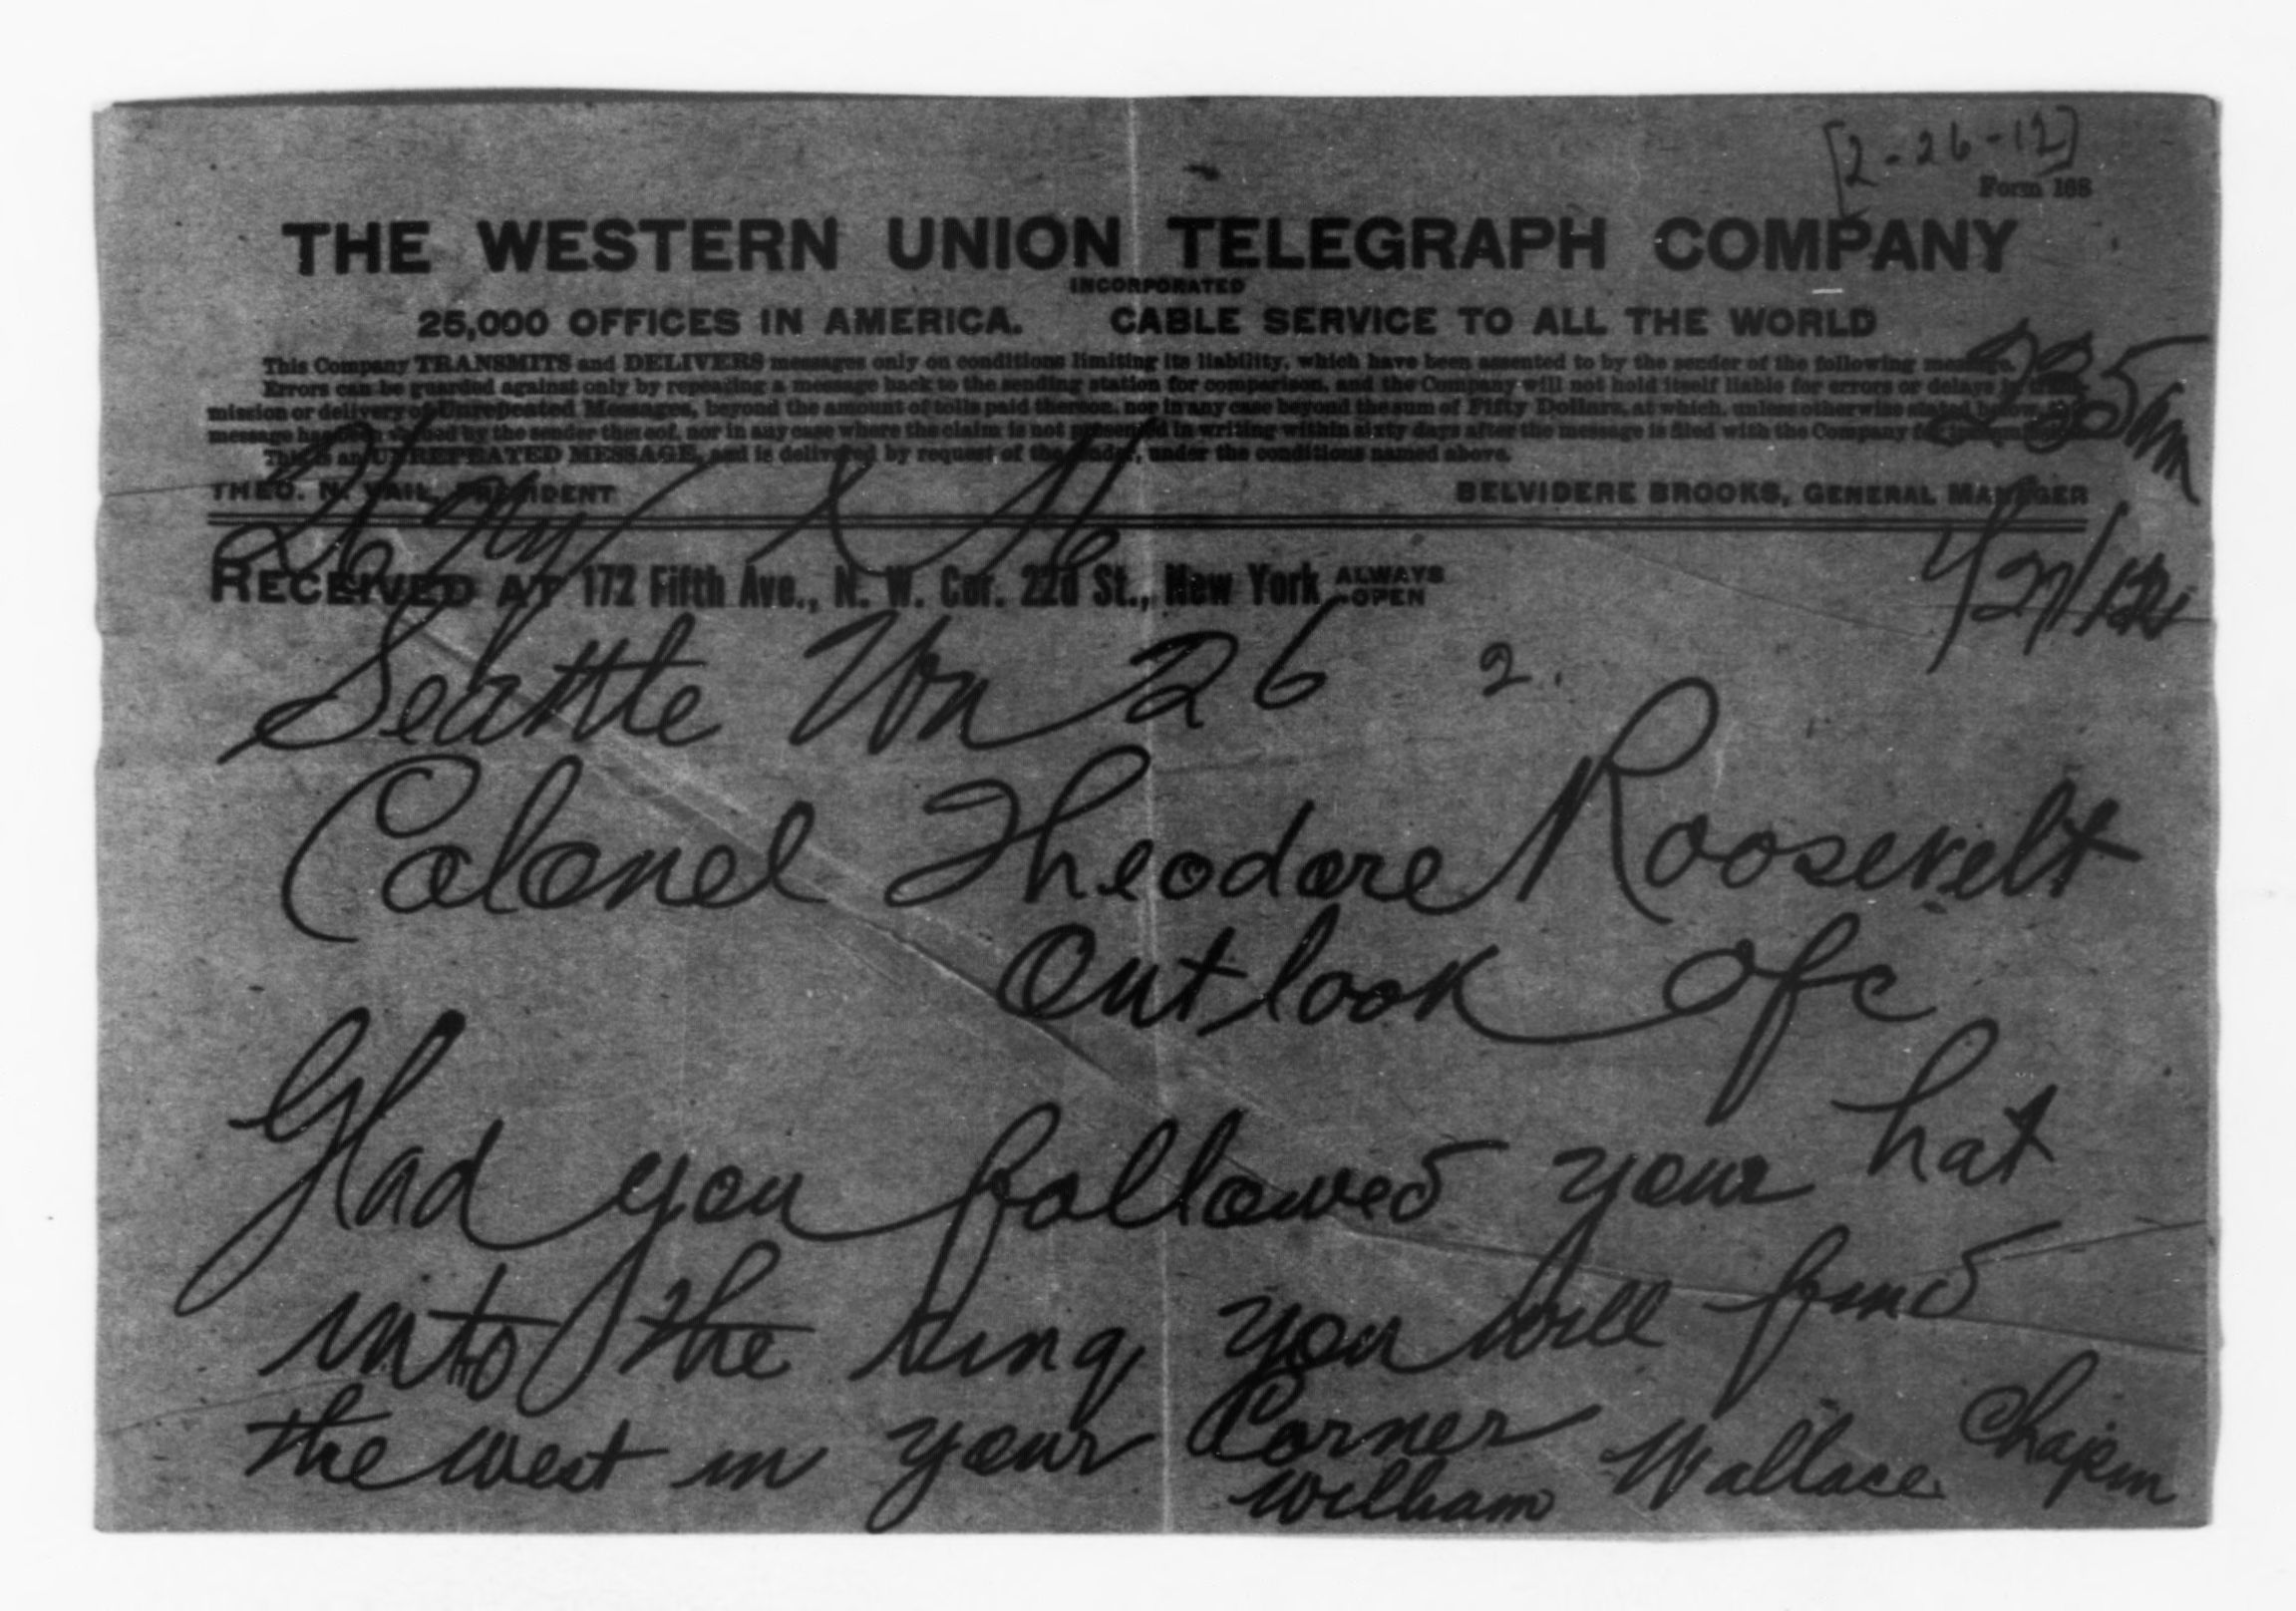 [2-26-12]
Form 168
THE WESTERN UNION TELEGRAPH COMPANY
INCORPORATED
25,000 OFFICES IN AMERICA. CABLE SERVICE TO ALL THE WORLD
This Company TRANSMITS and DELIVERS messages only on conditions limiting its liability, which have been assented to by the sender of the following message.
Errors can be guarded against only by repeating a message back to the sending station for comparison, and the Company will not hold itself liable for errors or delays in
mission or delivery of Unrepeated Messages, beyond the amount of tolls paid thereon, nor in any case beyond the sum of Fifty Dollars, at which, unless otherwise stated below,
message has been valued by the sender thereof, nor in any case where the claim is not presented in writing within sixty days after the message is filed with the Company for
This is an UNREPEATED MESSAGE, and is delivered by request of the sender, under the conditions named above.
THEO. N. VAIL, PRESIDENT BELVIDERE BROOKS, GENERAL MANAGER
235am
26 Ny 16
RECEIVED AT 172 Fifth Ave., N. W. Cor. 22d St., New York ALWAYS OPEN
27/12
Seattle Wn 26 2.
Colonel Theodore Roosevelt
Outlook Ofc
Glad you followed your hat
into the ring you will find
the west in your Corner
William Wallace Chapin